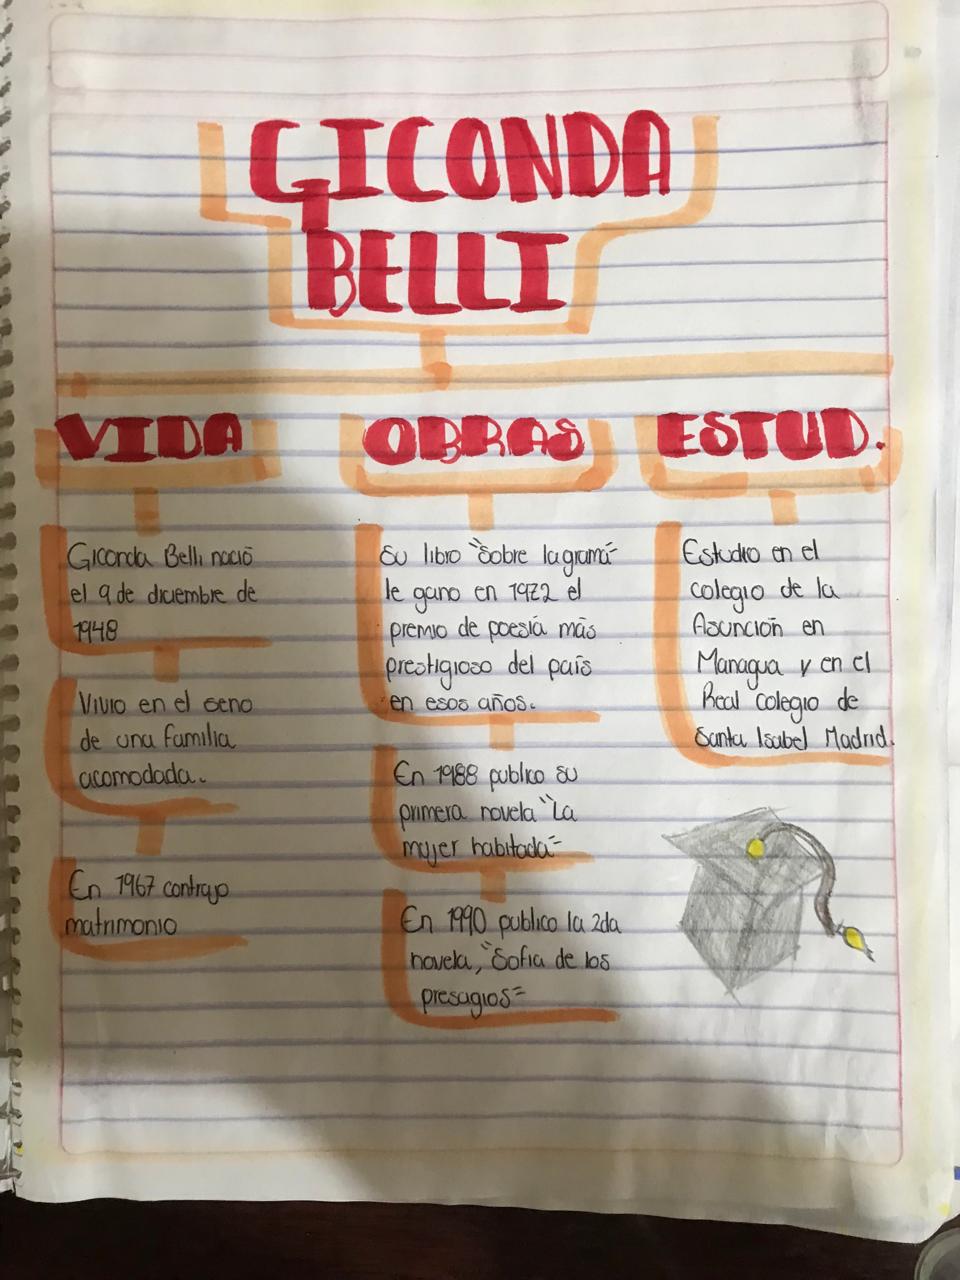 GICONDA
BELLI
VIDA
Giconda Belli nació
el 9 de diciembre de
1948
Vivio en el seno
de una familia
acomodada.
En 1967 contrajo
matrimonio
OBRAS
Su libro "Sobre la grama"
le gano en 1972 el
premio de poesía más
prestigioso del país
en esos años.
En 1988 publico su
primera novela "La
mujer habitada"
En 1990 publico la 2da
novela, "Sofia de los
presagios"
ESTUD.
Estudio en el
colegio de la
Asunción en
Managua y en el
Real Colegio de
Santa Isabel Madrid.